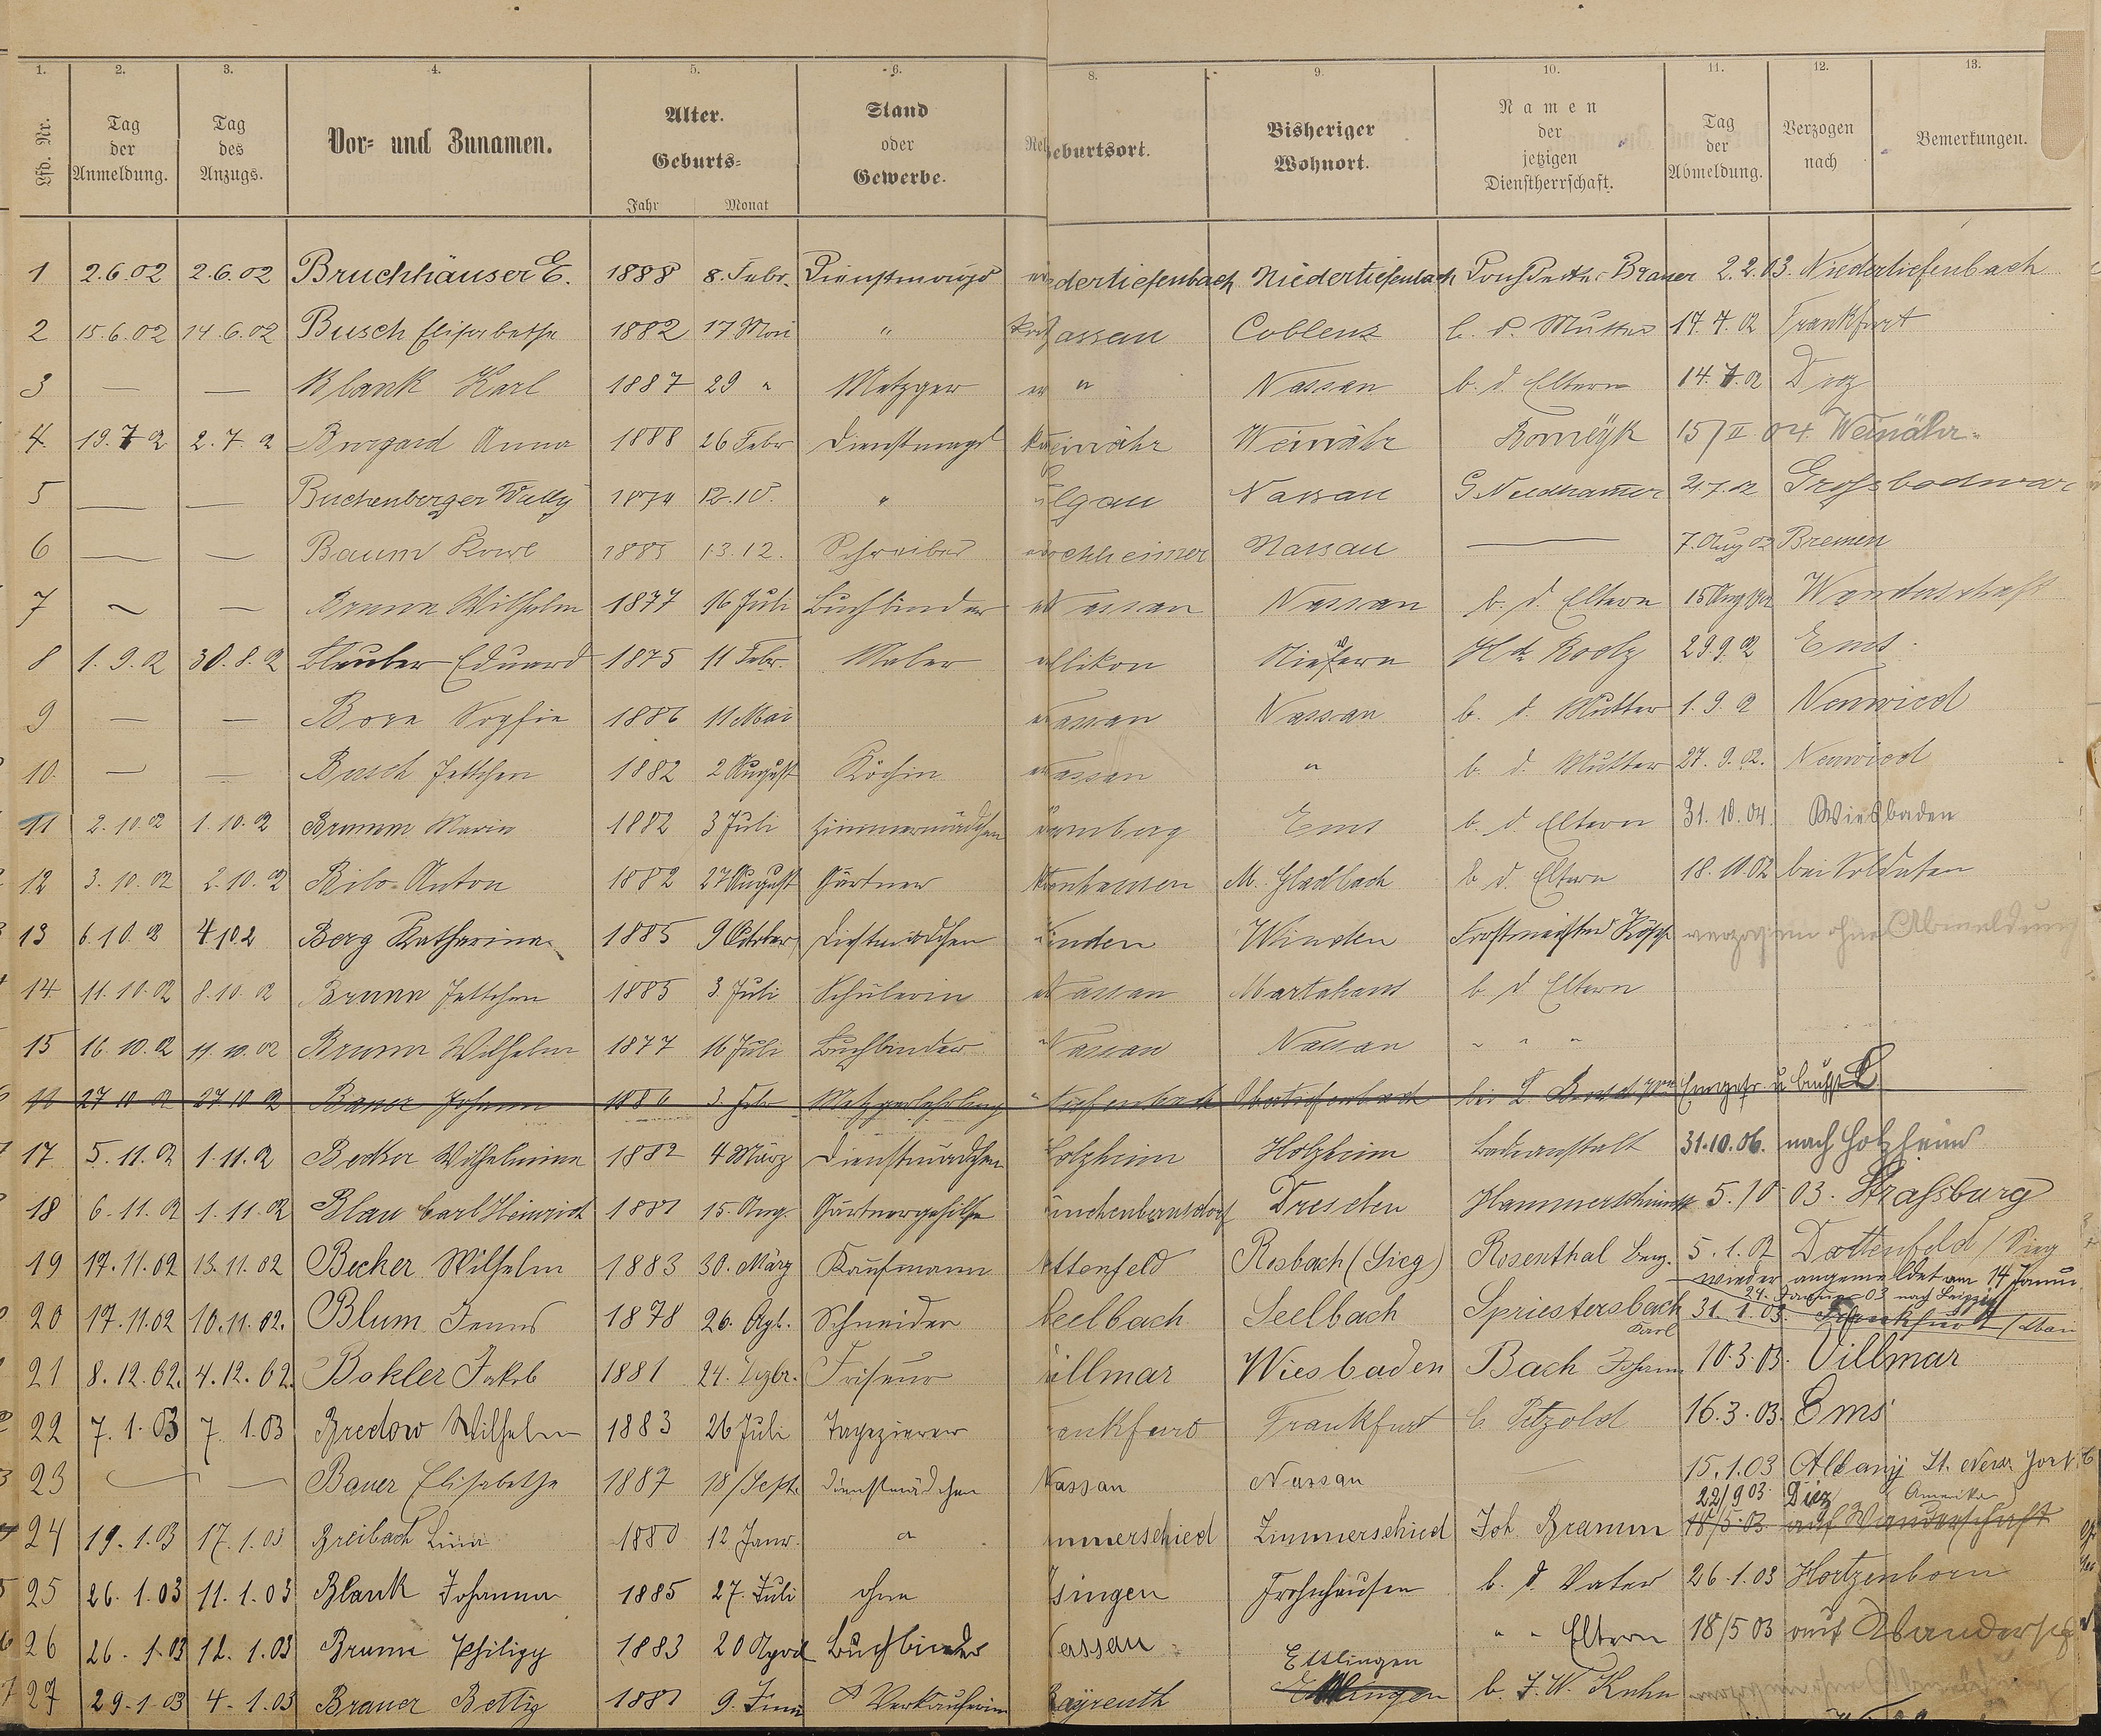 1. 2. 3. 4. 5. 6. 8. 9. 10. 11. 12. 13.
Lfd. Nr. Tag der Anmeldung. Tag des Anzugs. Vor- und Zunamen. Alter. Geburts- Jahr Monat Stand oder Gewerbe. Rel eburtsort. Bisheriger Wohnort. Namen der jetzigen Dienstherrschaft. Tag der Abmeldung. Verzogen nach Bemerkungen.
1 2.6.02 2.6.02 Bruchhäuser E. 1888 8. Febr. Dienstmagd dertiefenbach Niedertiefenbach Brauer 2.2.03. Niedertiefenbach
2 15.6.02 14.6.02 Busch Elisabethe 1882 17 Mai " assau Coblenz b. d. Mutter 17.7.02 Frankfurt
3 — — Blank Karl 1887 29 " Metzger " Nassau b. d. Eltern 14.7.02 Diez
4 19.7 02 2.7.02 Burgard Anna 1888 26 Febr Dienstmagd einähr Weinähr 15/II 04. Weinähr.
5 — — Buchenberger Willy 1874 12.10. " ulgau Nassau G Needhamer 2.7.02 Grossbodwar
6 — — Baum Karl 1885 13.12. Schreiber ochheimer Nassau — 7. Aug 02 Bremen
7 ~ — Brunn Wilhelm 1877 16 Juli Buchbinder Nassau Nassau b. d. Eltern 15 Aug 02 Wanderschaft
8 1.9.02 30.8.02 Blauber Eduard 1875 11 Febr. Maler llikon Niefern 29.9.02 Ems
9 — — Born Sophie 1886 11 Mai assau Nassau b. d. Mutter 1.9.02 Neuwied
10. — — Busch Jettchen 1882 2 August Köchin assau " b. d. Mutter 27.9.02. Neuwied
11 2.10.02 1.10.02 Bramm Maria 1882 3 Juli Zimmermädchen mberg Ems b. d. Eltern 31.10.04. Wiesbaden
12 3.10.02 2.10.02 Bilo Anton 1882 27 August Gärtner enhausen M. Gladbach b d. Eltern 18.10.02 bei Soldaten
13 6.10.02 4 10 2 Berg Katharina 1885 9 October Dienstmädchen inden Winden Forstmeister verzogen ohne Abmeldung
14 11.10.02 8.10.02 Brunn Jettchen 1885 3. Juli Schülerin Nassau Martahaus b. d. Eltern
15 16.10.02 11.10.02 Brunn Wilhelm 1877 16 Juli Buchbinder Nassau Nassau " " "
16 27 10 02 27 10 02 Bauer Johann 1886 3. Febr Metzgerlehrling tiefenbach Obertiefenbach bei L. Eingetr. u. Buchst L
17 5.11.02 1.11.02 Becker Wilhelmine 1882 4 März Dienstmädchen olzheim Holzheim Badeanstalt 31.10.06. nach Holzheim
18 6.11.02 1.11.02 Blau Carl Heinrich 1881 15. Aug. Gärtnergehilfe ünchenbernsdorf Dresden Hammerschmidt 5.10 03. Straßburg
19 17.11.02 13.11.02 Becker Wilhelm 1883 30. März Kaufmann attenfeld Rosbach (Sieg) Rosenthal Berg. 5.1.02 Dattenfeld / Sieg
wieder angemeldet am 14 Janur
24. Januar 03 nach Leipzig
20 17.11.02 10.11.02. Blum 1878 26. Apl. Schneider Seelbach Seelbach Spriestersbach Karl 31.1.03. Frankfurt / Main
21 8.12.02. 4.12.02. Bokler Jakob 1881 24. Dezbr. Friseur illmar Wiesbaden Bach Johann 10.3.03. Villmar
22 7.1.03 7.1.03 Bredow Wilhelm 1883 26 Juli Tapezierer ankfurt Frankfurt C Petzold 16.3.03. Ems
23 — — Bauer Elisabethe 1887 18/Sept. Dienstmädchen Nassau Nassau — 15.1.03 Albany St. New York
22/9 03. Diez Amerika
24 19.1.03 17.1.03 Breibach Lina 1880 12 Janr. " mmerschied Zimmerschied Joh Bramm 18/5.03. auf Wanderschaft
25 26.1.03 11.1.03 Blank Johanna 1885 27. Juli ohne singen Frohnhausen b. d. Vater 26.1.03 Hortzenborn
26 26.1.03 12.1.03 Brunn Philipp 1883 20 April Buchbinder assau " " Eltern 18/5 03 auf Wandersch
Ettlingen
27 29.1.03 4.1.03 Brauer Bettig 1881 9. Juni Verkäuferin Bayreuth b. J. W. Kuhn